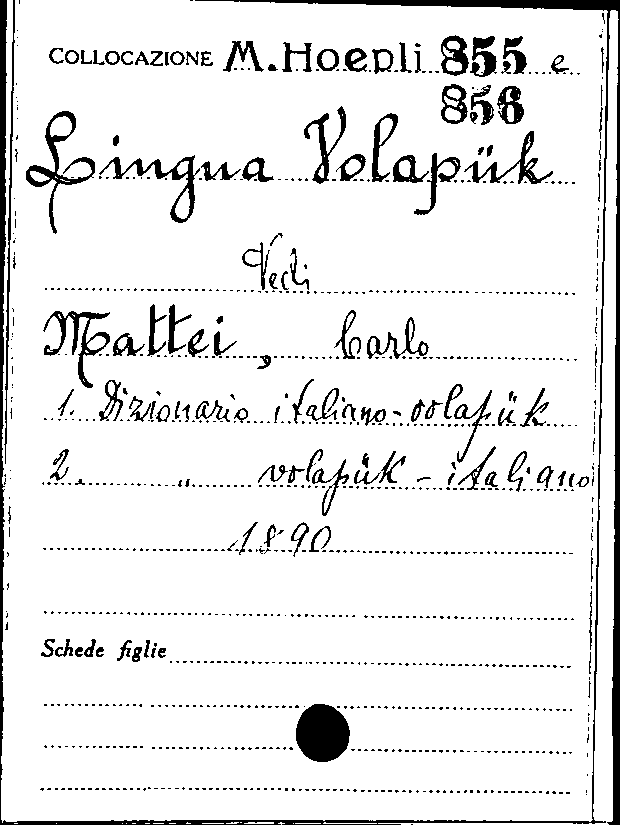 COLLOCAZIONE M. Hoepli 855 e
856
Lingua Volapük
Vedi
Mattei, Carlo
1. Dizionario italiano-volapük
2. " volapük - italiano
1890
Schede figlie